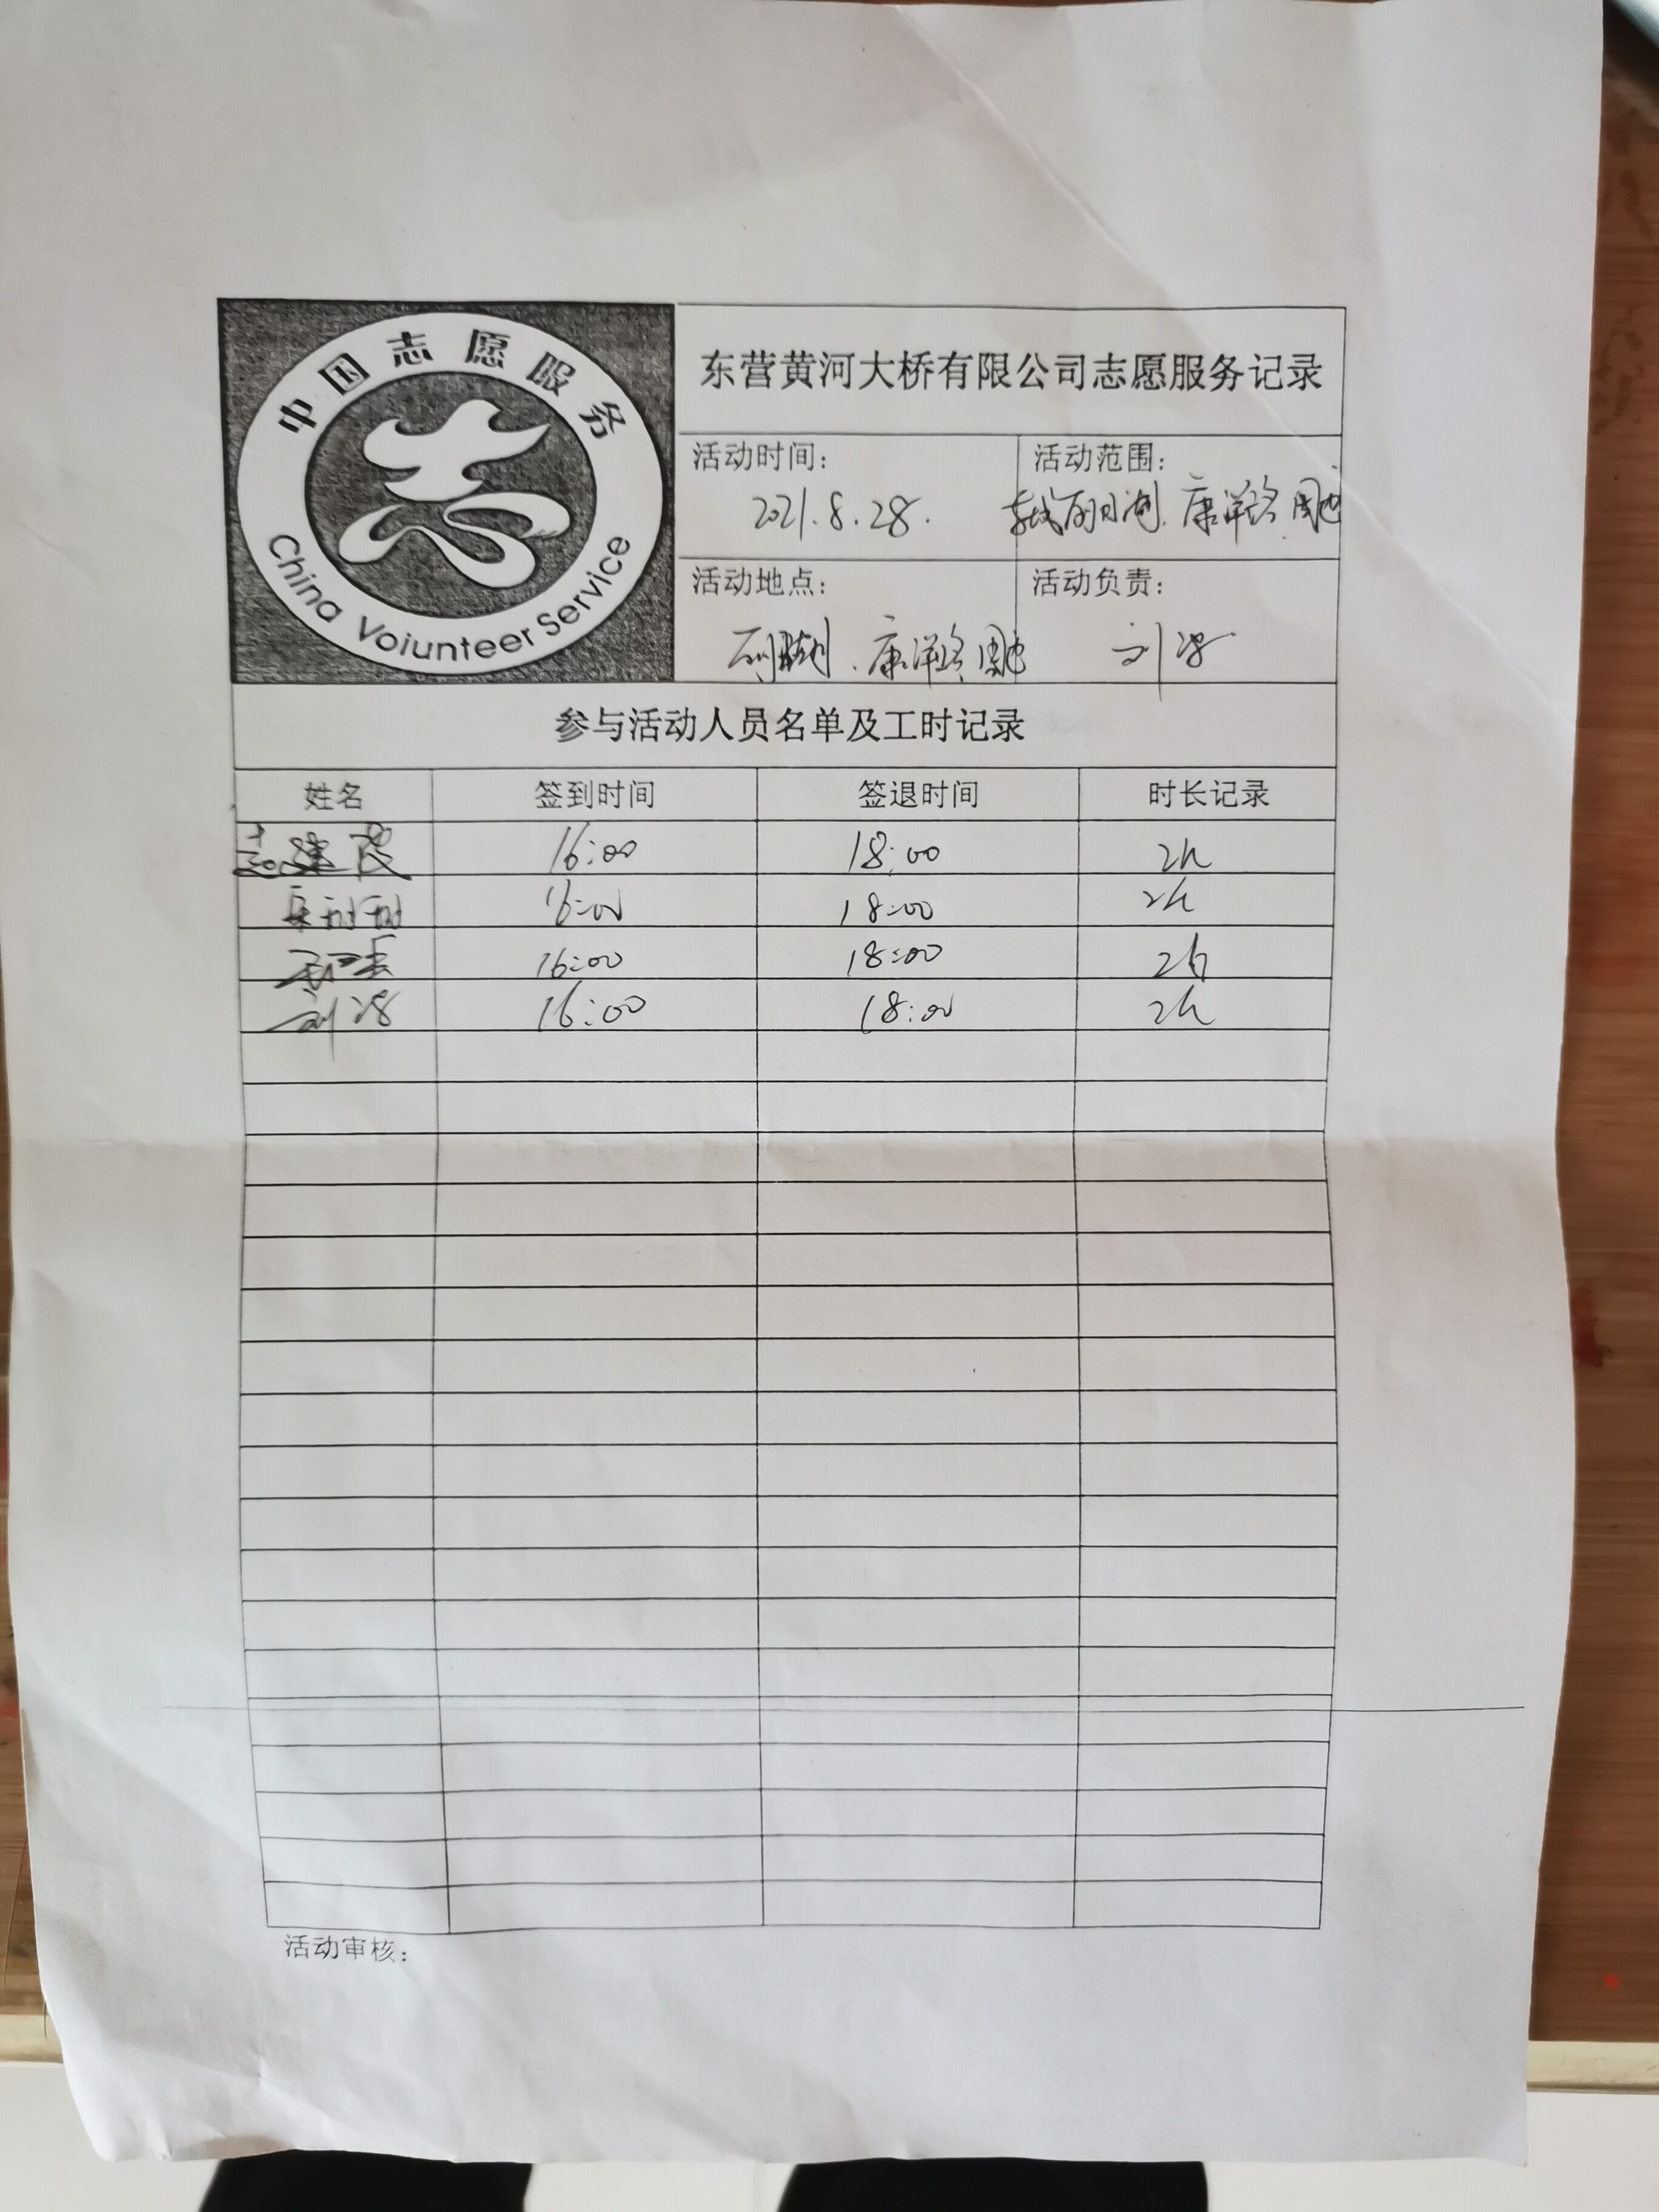 中国志愿服务
China Voiunteer Service
东营黄河大桥有限公司志愿服务记录
活动时间：
活动范围：
2021.8.28.
康洋路 周边
活动地点：
活动负责：
康洋路 周边
刘
参与活动人员名单及工时记录
姓名 签到时间 签退时间 时长记录
16:00 18:00 2h
16:00 18:00 2h
16:00 18:00 2h
刘 16:00 18:00 2h
活动审核：